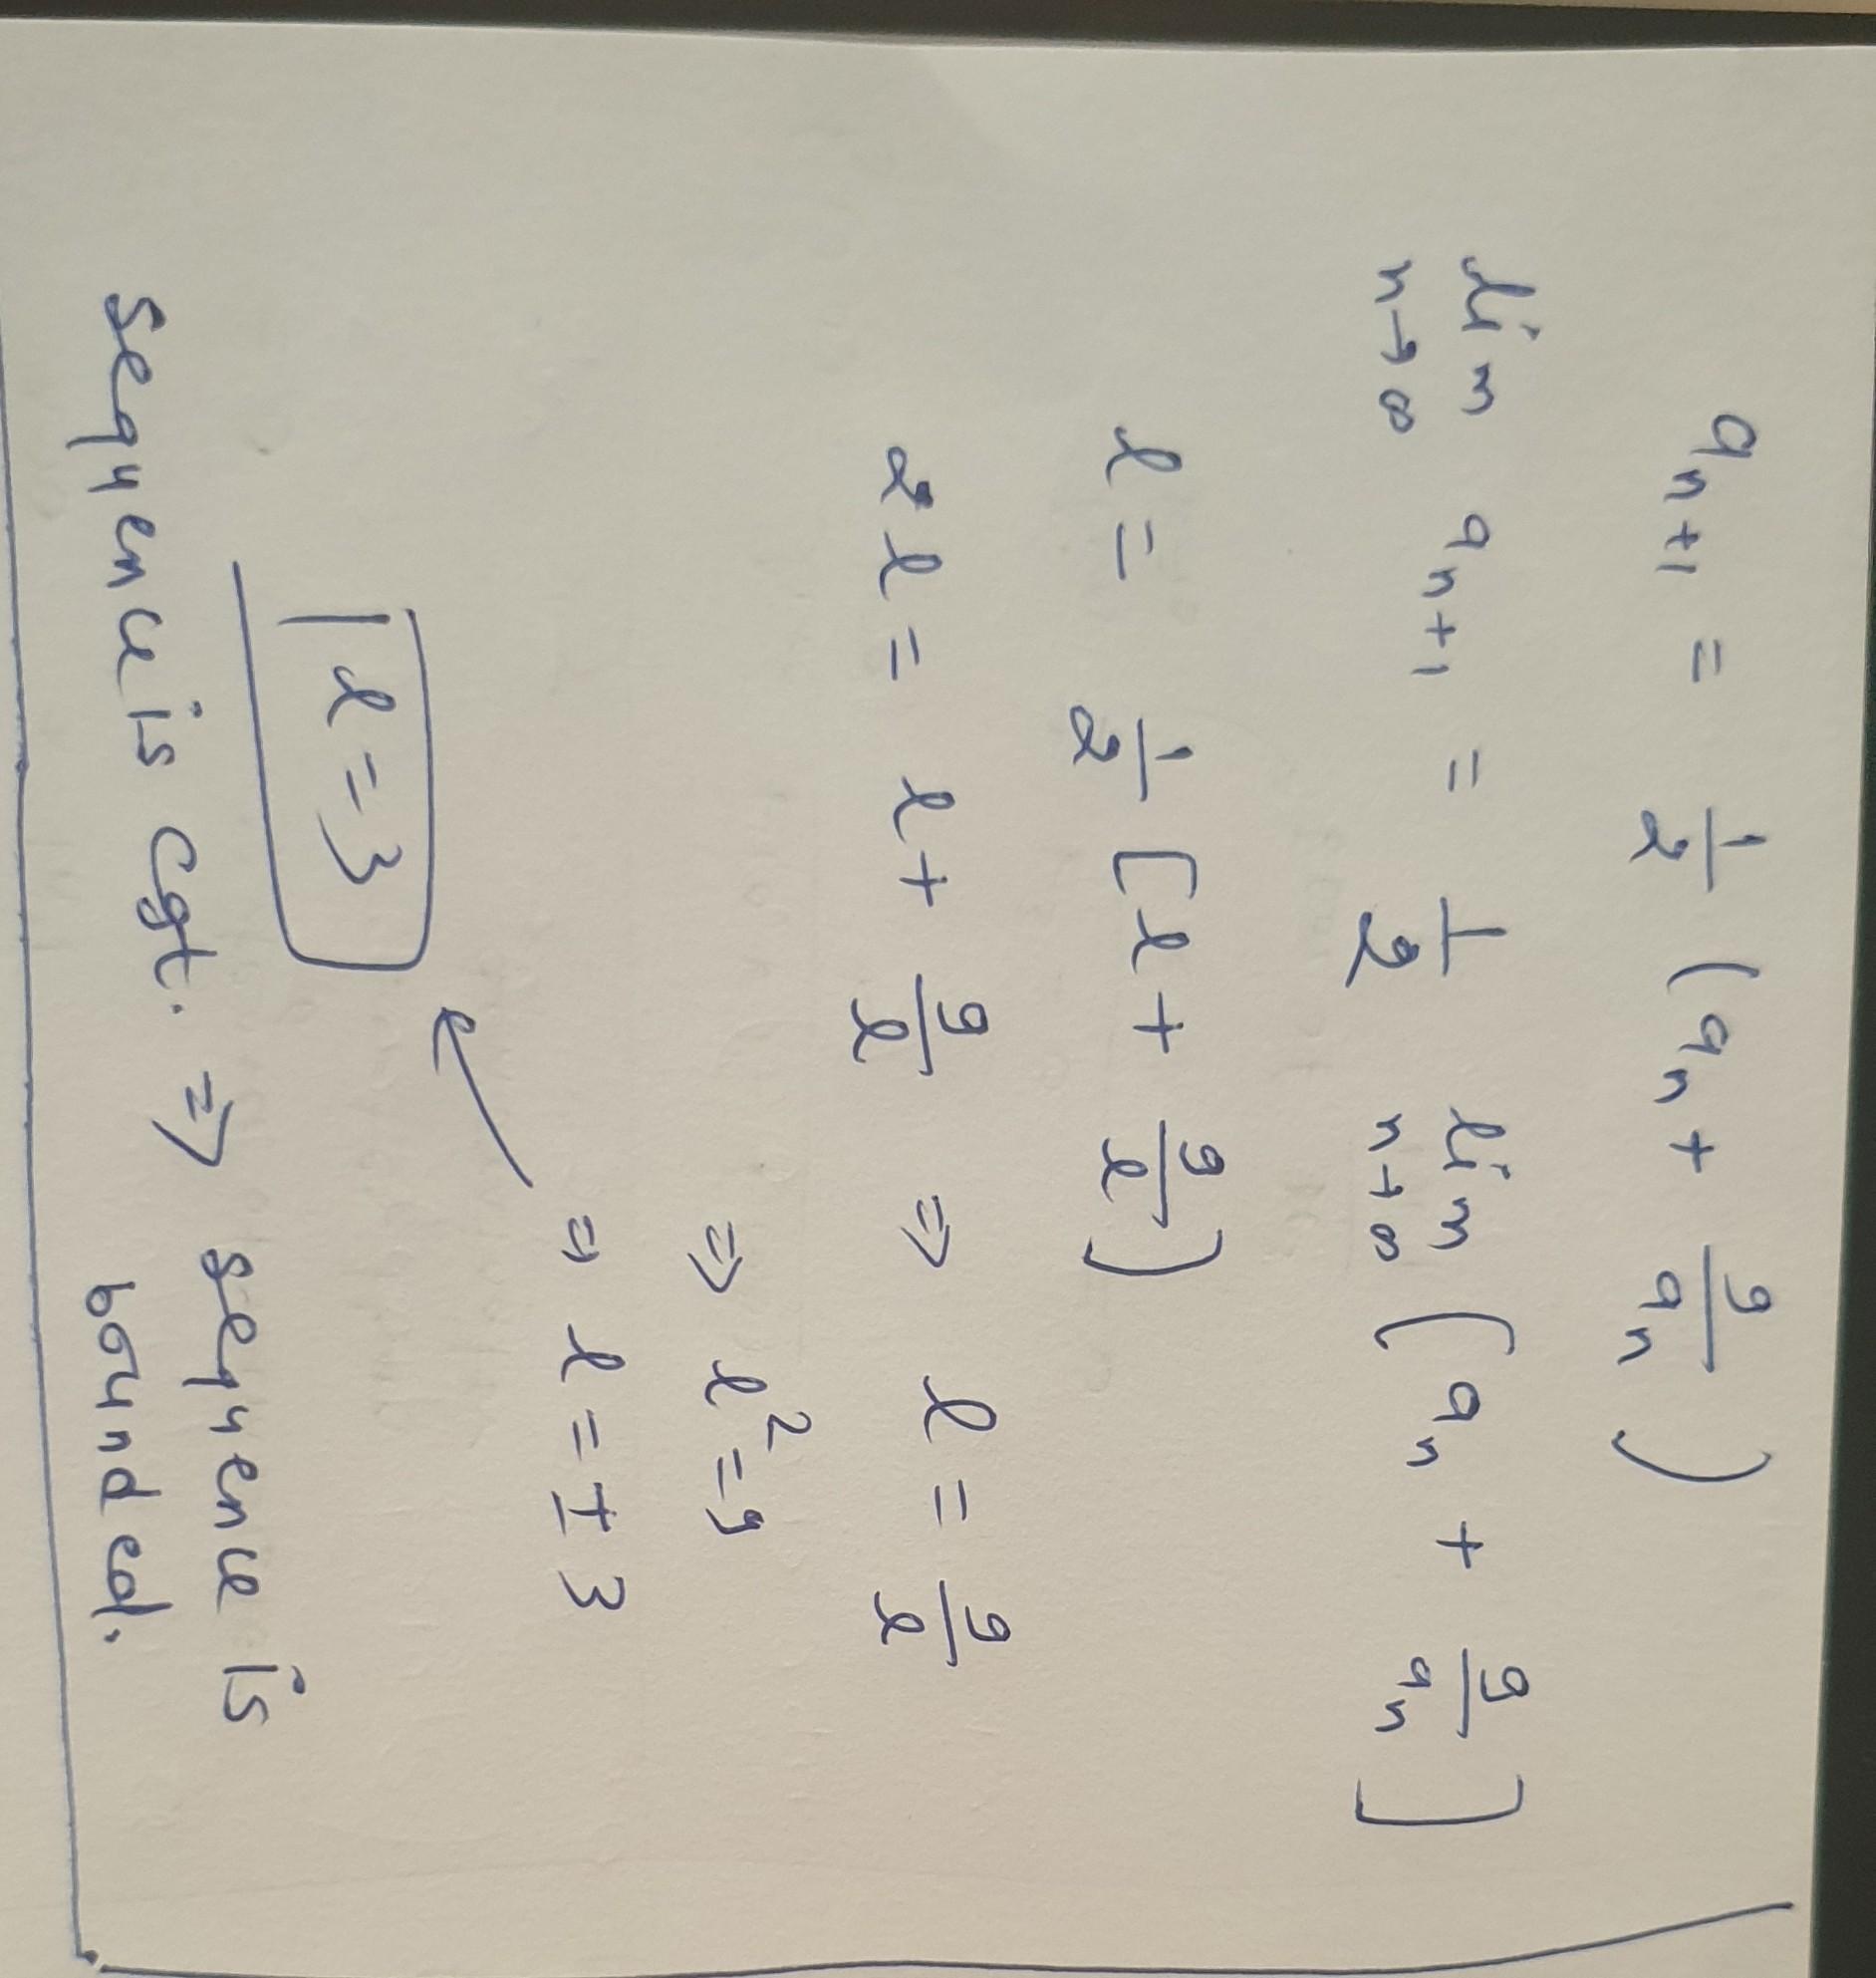 a_{n+1} = 1/2 (a_n + 9/a_n)
lim_{n→∞} a_{n+1} = 1/2 lim_{n→∞} (a_n + 9/a_n]
l = 1/2 [l + 9/l)
2l = l + 9/l ⇒ l = 9/l
⇒ l² = 9
⇒ l = ± 3
l = 3
sequence is cgt. ⇒ sequence is
bounded.